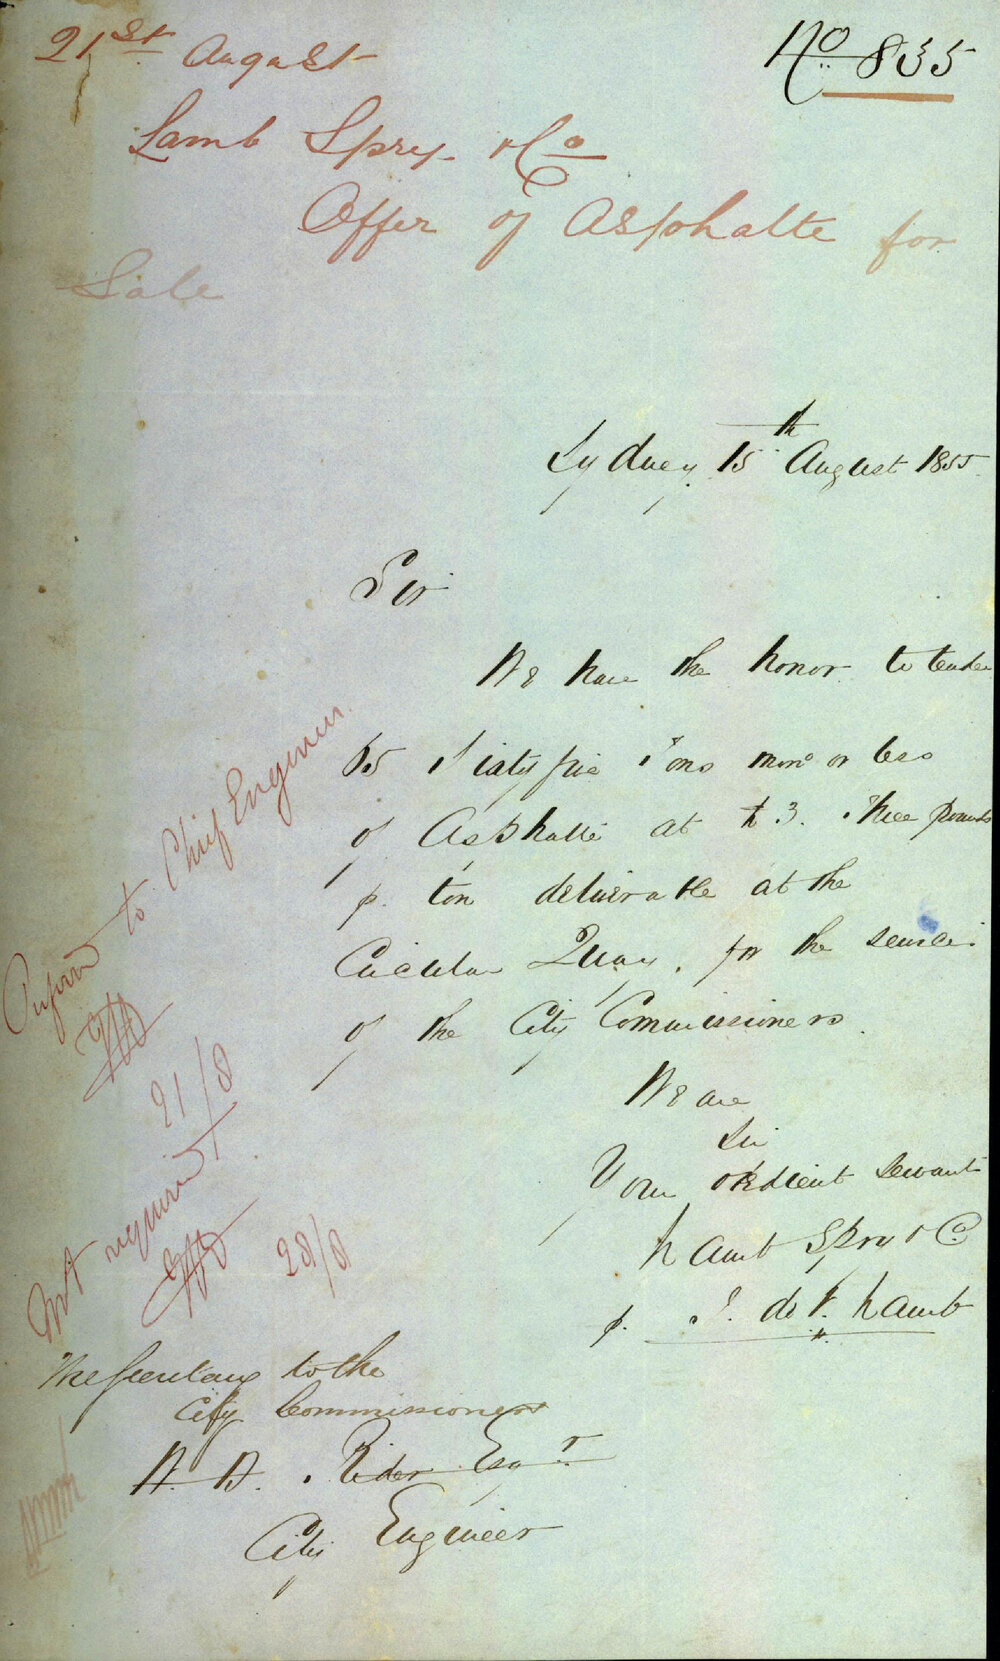 21st August
No 835
Lamb Spry & Co
Offer of Asphalte for
Sale
Sydney 15th August 1855
Sir
We have the honor to tender
65 Sixty five Tons more or less
of Asphalte at £3. Three pounds
p. ton deliverable at the
Circular Quay, for the service
of the City Commissioners.
We are
Sir
Your obedient servants
Lamb Spry & Co
p. J. de V. Lamb
Refered to Chief Engineer
21/8
Not required
28/8
The Secretary to the
City Commissioners
W. B. Rider Esqr
City Engineer